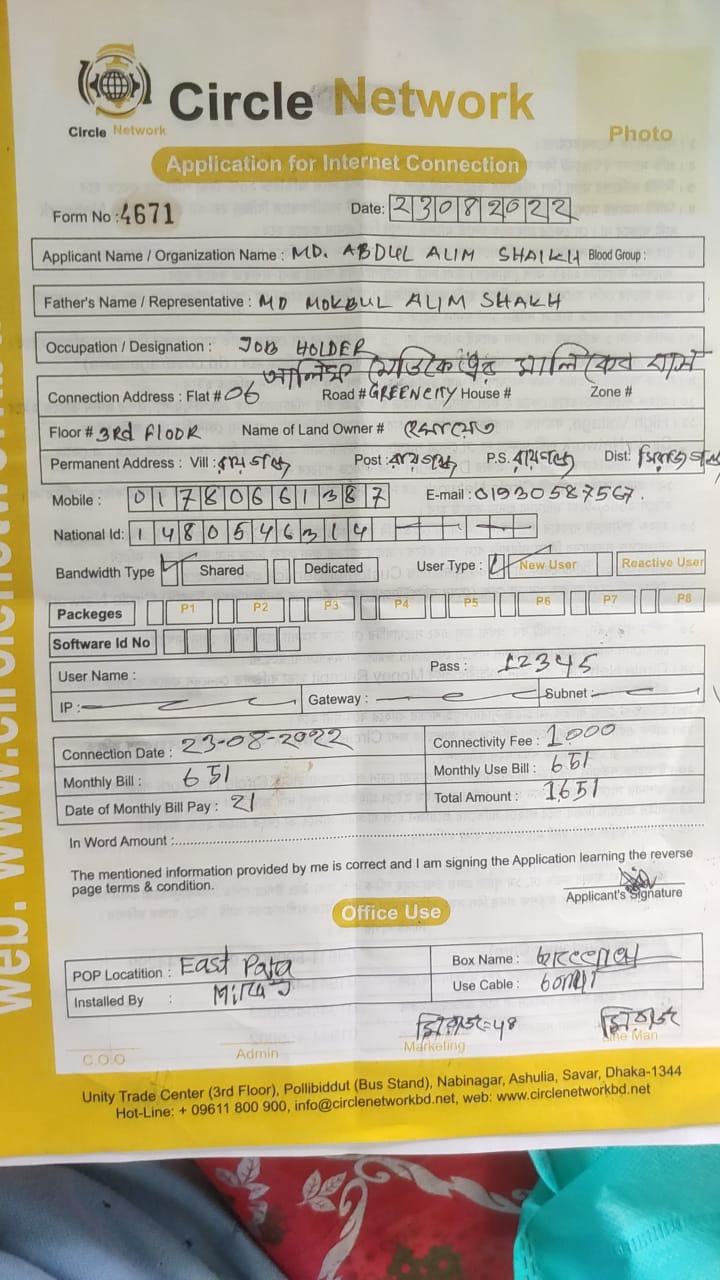 Circle Network
Circle Network
Photo
Application for Internet Connection
Form No : 4671 Date: 23082022
Applicant Name / Organization Name : MD. ABDUL ALIM SHAIKH Blood Group :
Father's Name / Representative : MD MOKBUL ALIM SHAKH
Occupation / Designation : JOB HOLDER
মালিকের বাসা
Connection Address : Flat # 06 Road # GREENCITY House # Zone #
Floor # 3rd FlOOR Name of Land Owner #
Permanent Address : Vill : রায়গঞ্জ Post : রায়গঞ্জ P.S. রায়গঞ্জ Dist: সিরাজগঞ্জ
Mobile : 01780661387 E-mail : 01930587567.
National Id: 1480546314
Bandwidth Type Shared Dedicated User Type : New User Reactive User
Packeges P1 P2 P3 P4 P5 P6 P7 P8
Software Id No
User Name : Pass : 12345
IP : Gateway : Subnet :
Connection Date : 23-08-2022 Connectivity Fee : 1000
Monthly Bill : 651 Monthly Use Bill : 651
Date of Monthly Bill Pay : 21 Total Amount : 1651
In Word Amount :
The mentioned information provided by me is correct and I am signing the Application learning the reverse
page terms & condition.
Applicant's Signature
Office Use
POP Locatition : East Para Box Name :
Installed By : Miraj Use Cable :
মিরাজ মিরাজ
C.O.O Admin Marketing Line Man
Unity Trade Center (3rd Floor), Pollibiddut (Bus Stand), Nabinagar, Ashulia, Savar, Dhaka-1344
Hot-Line: + 09611 800 900, info@circlenetworkbd.net, web: www.circlenetworkbd.net